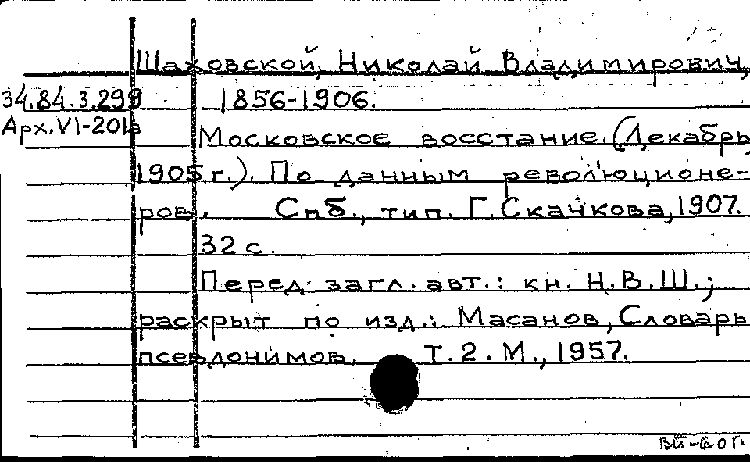 Шаховской, Николай Владимирович,
34.84.3.299 1856-1906.
Арх.VI-201а Московское восстание. (Декабрь
1905 г.). По данным революционе-
ров. Спб., тип. Г. Скачкова, 1907.
32 с.
Перед загл. авт.: кн. Н.В.Ш.;
раскрыт по изд.: Масанов, Словарь
псевдонимов. Т. 2. М., 1957.